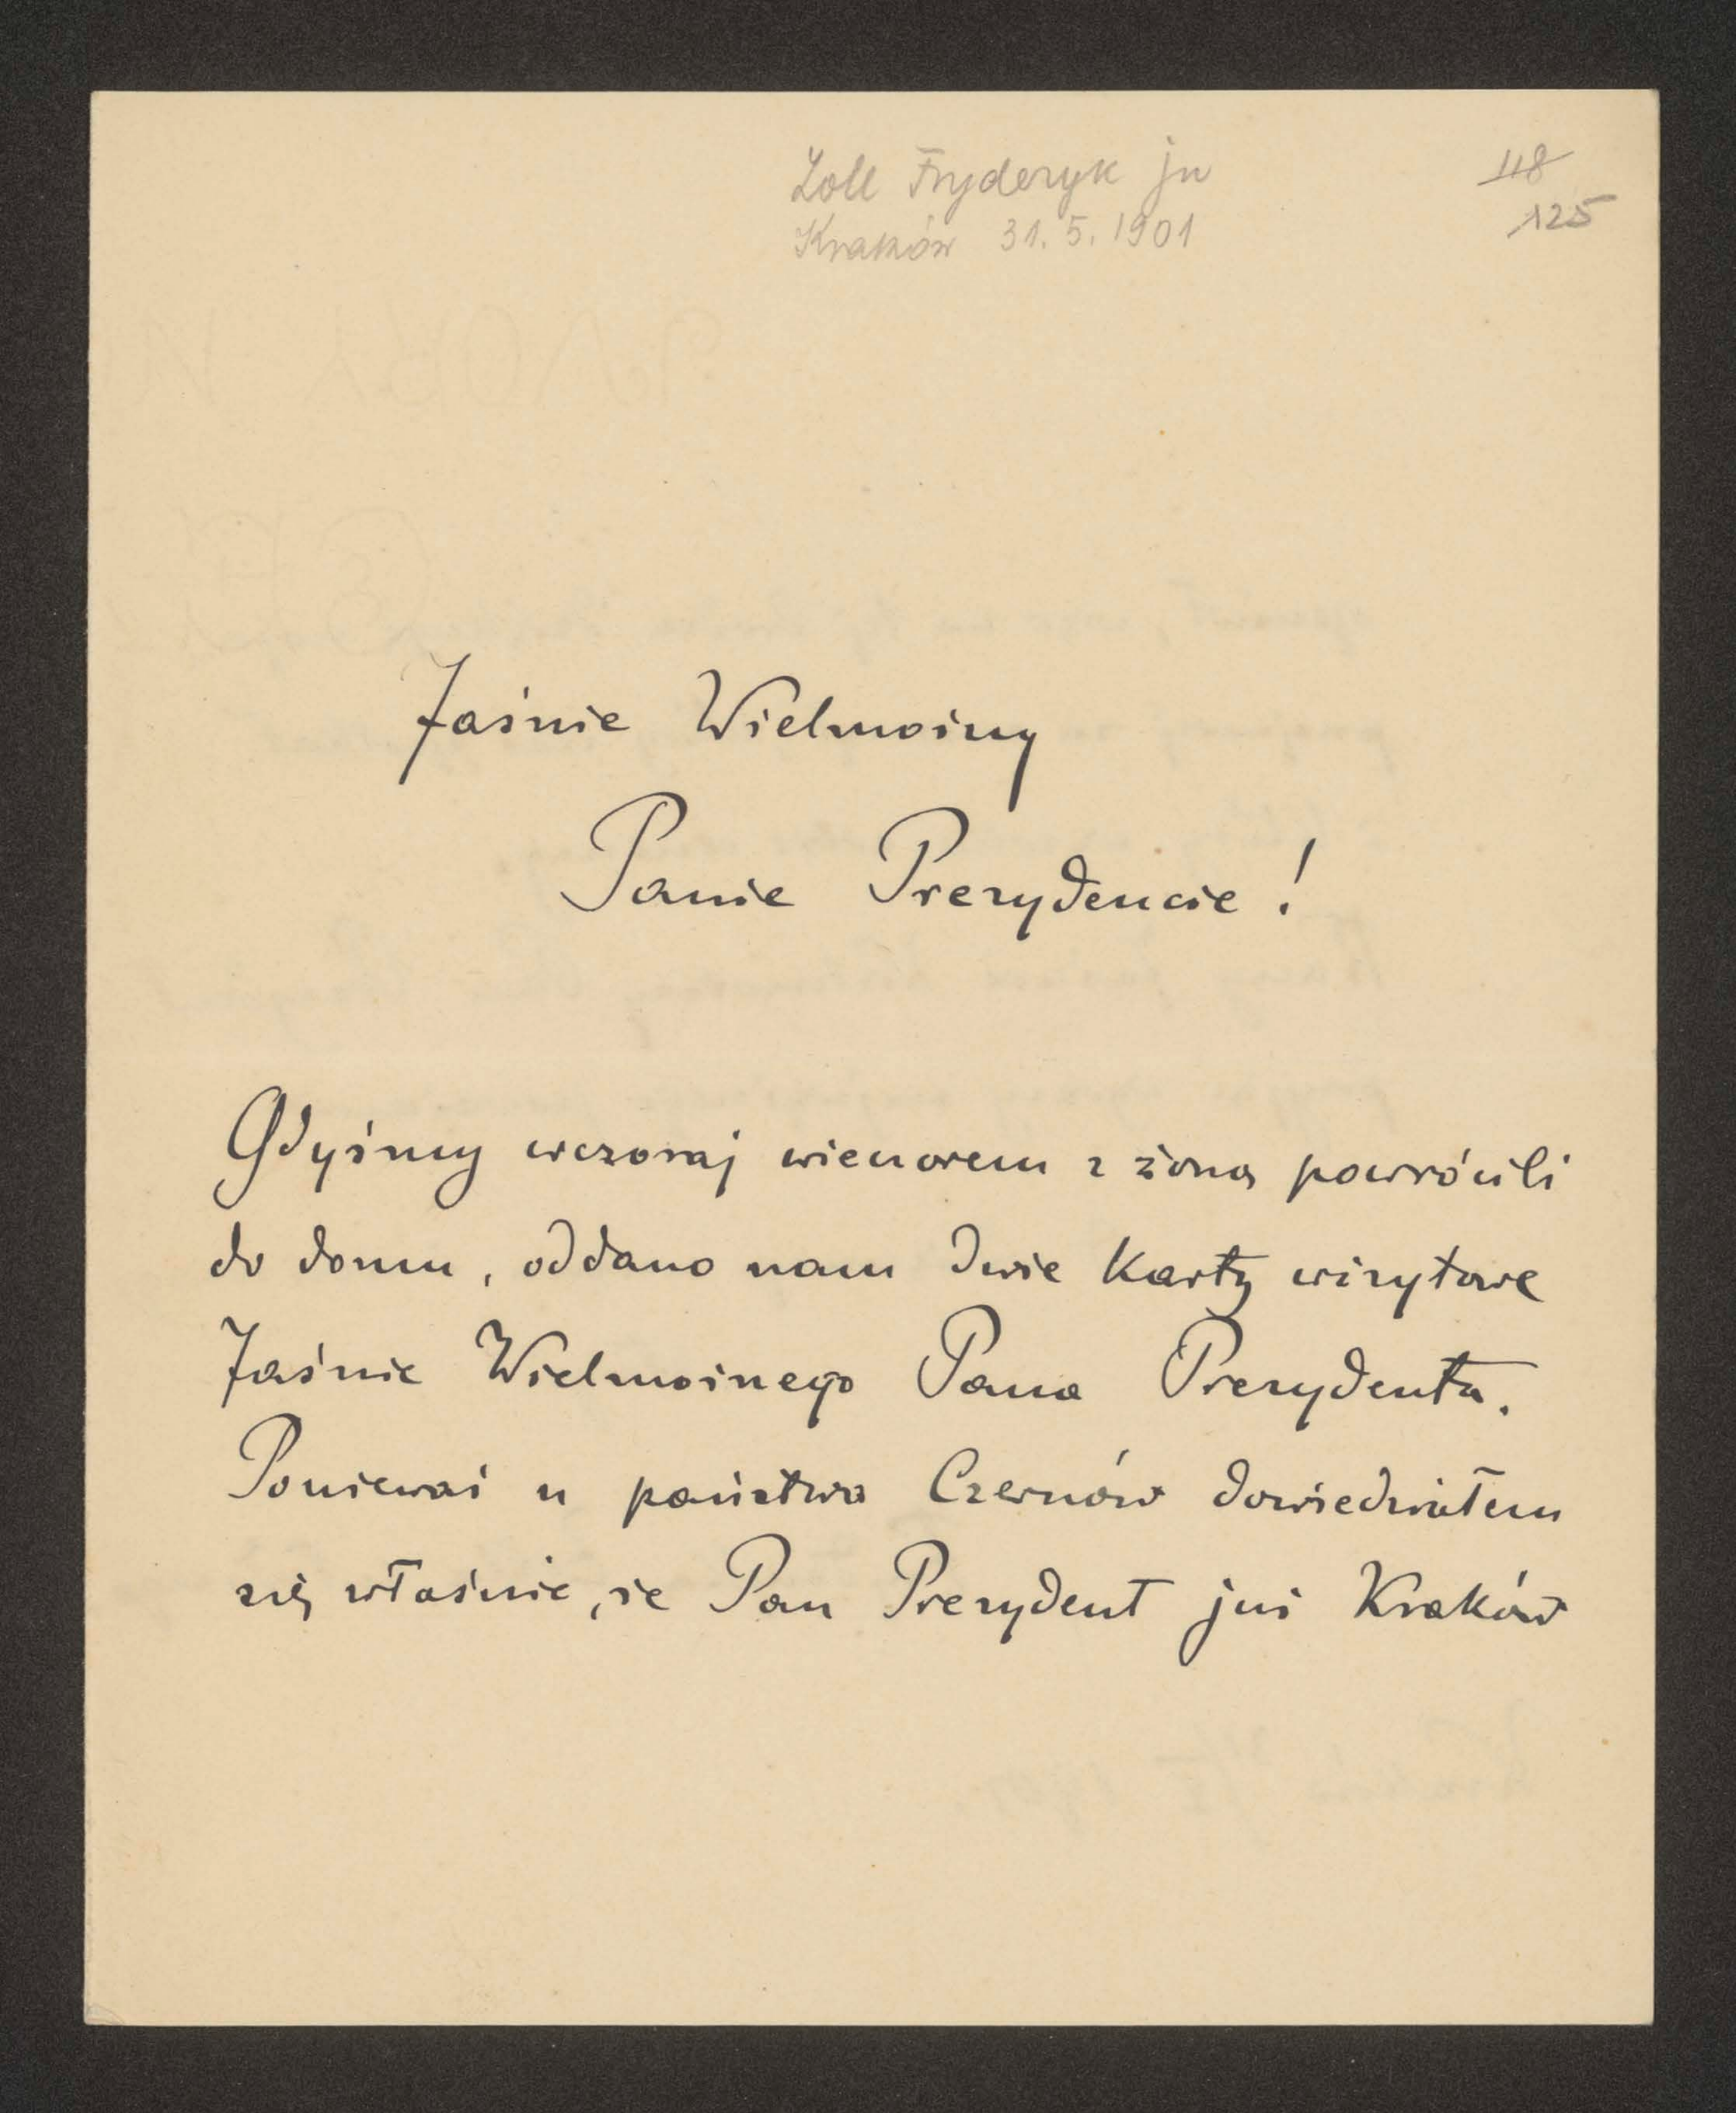 Zoll Fryderyk jn
Kraków 31.5.1901
118
125
Jaśnie Wielmożny
Panie Prezydencie!
Gdyśmy wczoraj wieczorem z żoną powrócili
do domu, oddano nam dwie karty wizytowe
Jaśnie Wielmożnego Pana Prezydenta.
Ponieważ u państwa Czernów dowiedziałem
się właśnie, że Pan Prezydent już Kraków